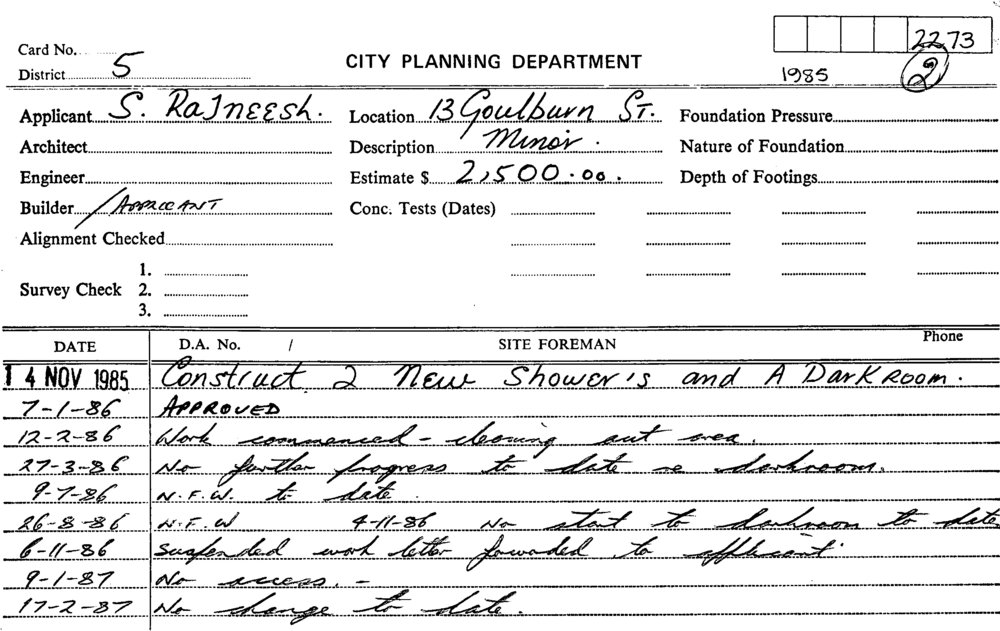 Card No.
2273
District 5
CITY PLANNING DEPARTMENT
1985 2
Applicant S. RaJneesh. Location 13 Goulburn St. Foundation Pressure
Architect Description Minor. Nature of Foundation
Engineer Estimate $ 2,500.00. Depth of Footings
Builder / APPLICANT Conc. Tests (Dates)
Alignment Checked
1.
Survey Check 2.
3.
DATE D.A. No. / SITE FOREMAN Phone
14 NOV 1985 Construct 2 New Shower's and A DarkRoom.
7-1-86 APPROVED
12-2-86 Work commenced - cleaning out area.
27-3-86 No further progress to date re darkroom.
9-7-86 N.F.W. to date
26-8-86 N.F.W 4-11-86 No start to darkroom to date
6-11-86 Suspended work letter forwarded to applicant
9-1-87 No access. -
17-2-87 No change to date.